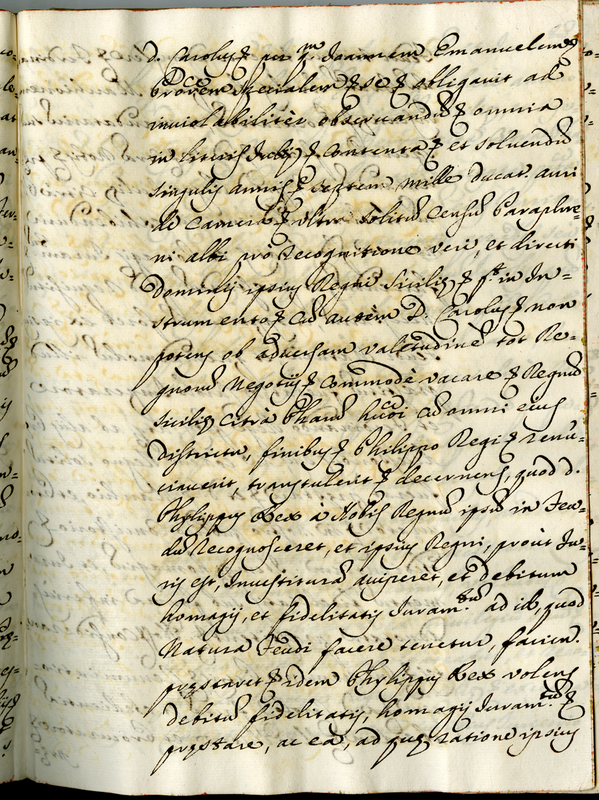 d. Carolus & per q.m Joannem Emanuelem &
Procrem specialem & se & obligavit ad
inviolabiliter observandū & omnia
in literis dictis & contenta & et solvendū
singulis annis & septem mille ducat. auri
de Camera & ultra solitū Censū Paraphre=
ni albi pro Recognitione veri, et directi
Dominij ipsius Regni Siciliȩ & pt. in In=
strumento & Cū autem D. Carolus & non
potens ob adversam valetudinē tot Re=
gnorū negotijs & Commodè vacare & Regnū
Siciliȩ Citrà Pharū hūdi cū omni eius
districtu, finibus & Philippo Regi & renu=
ciaverit, transtulerit & decernens, quod d.
Phylippus Rex à Nobis Regnū ipsū in Feu=
dū Recognosceret, et ipsius Regni, prout Iu=
ris est, Investiturā acciperet, et debitum
homagij, et fidelitatis Iuram.tum ad id, quod
Natura Feudi facere tenetur, facien.
prȩstaret & idem Phylippus Rex volens
debitū fidelitatis, homagij Iuram.tum &
prȩstare, ac ea, ad quȩ ratione ipsius